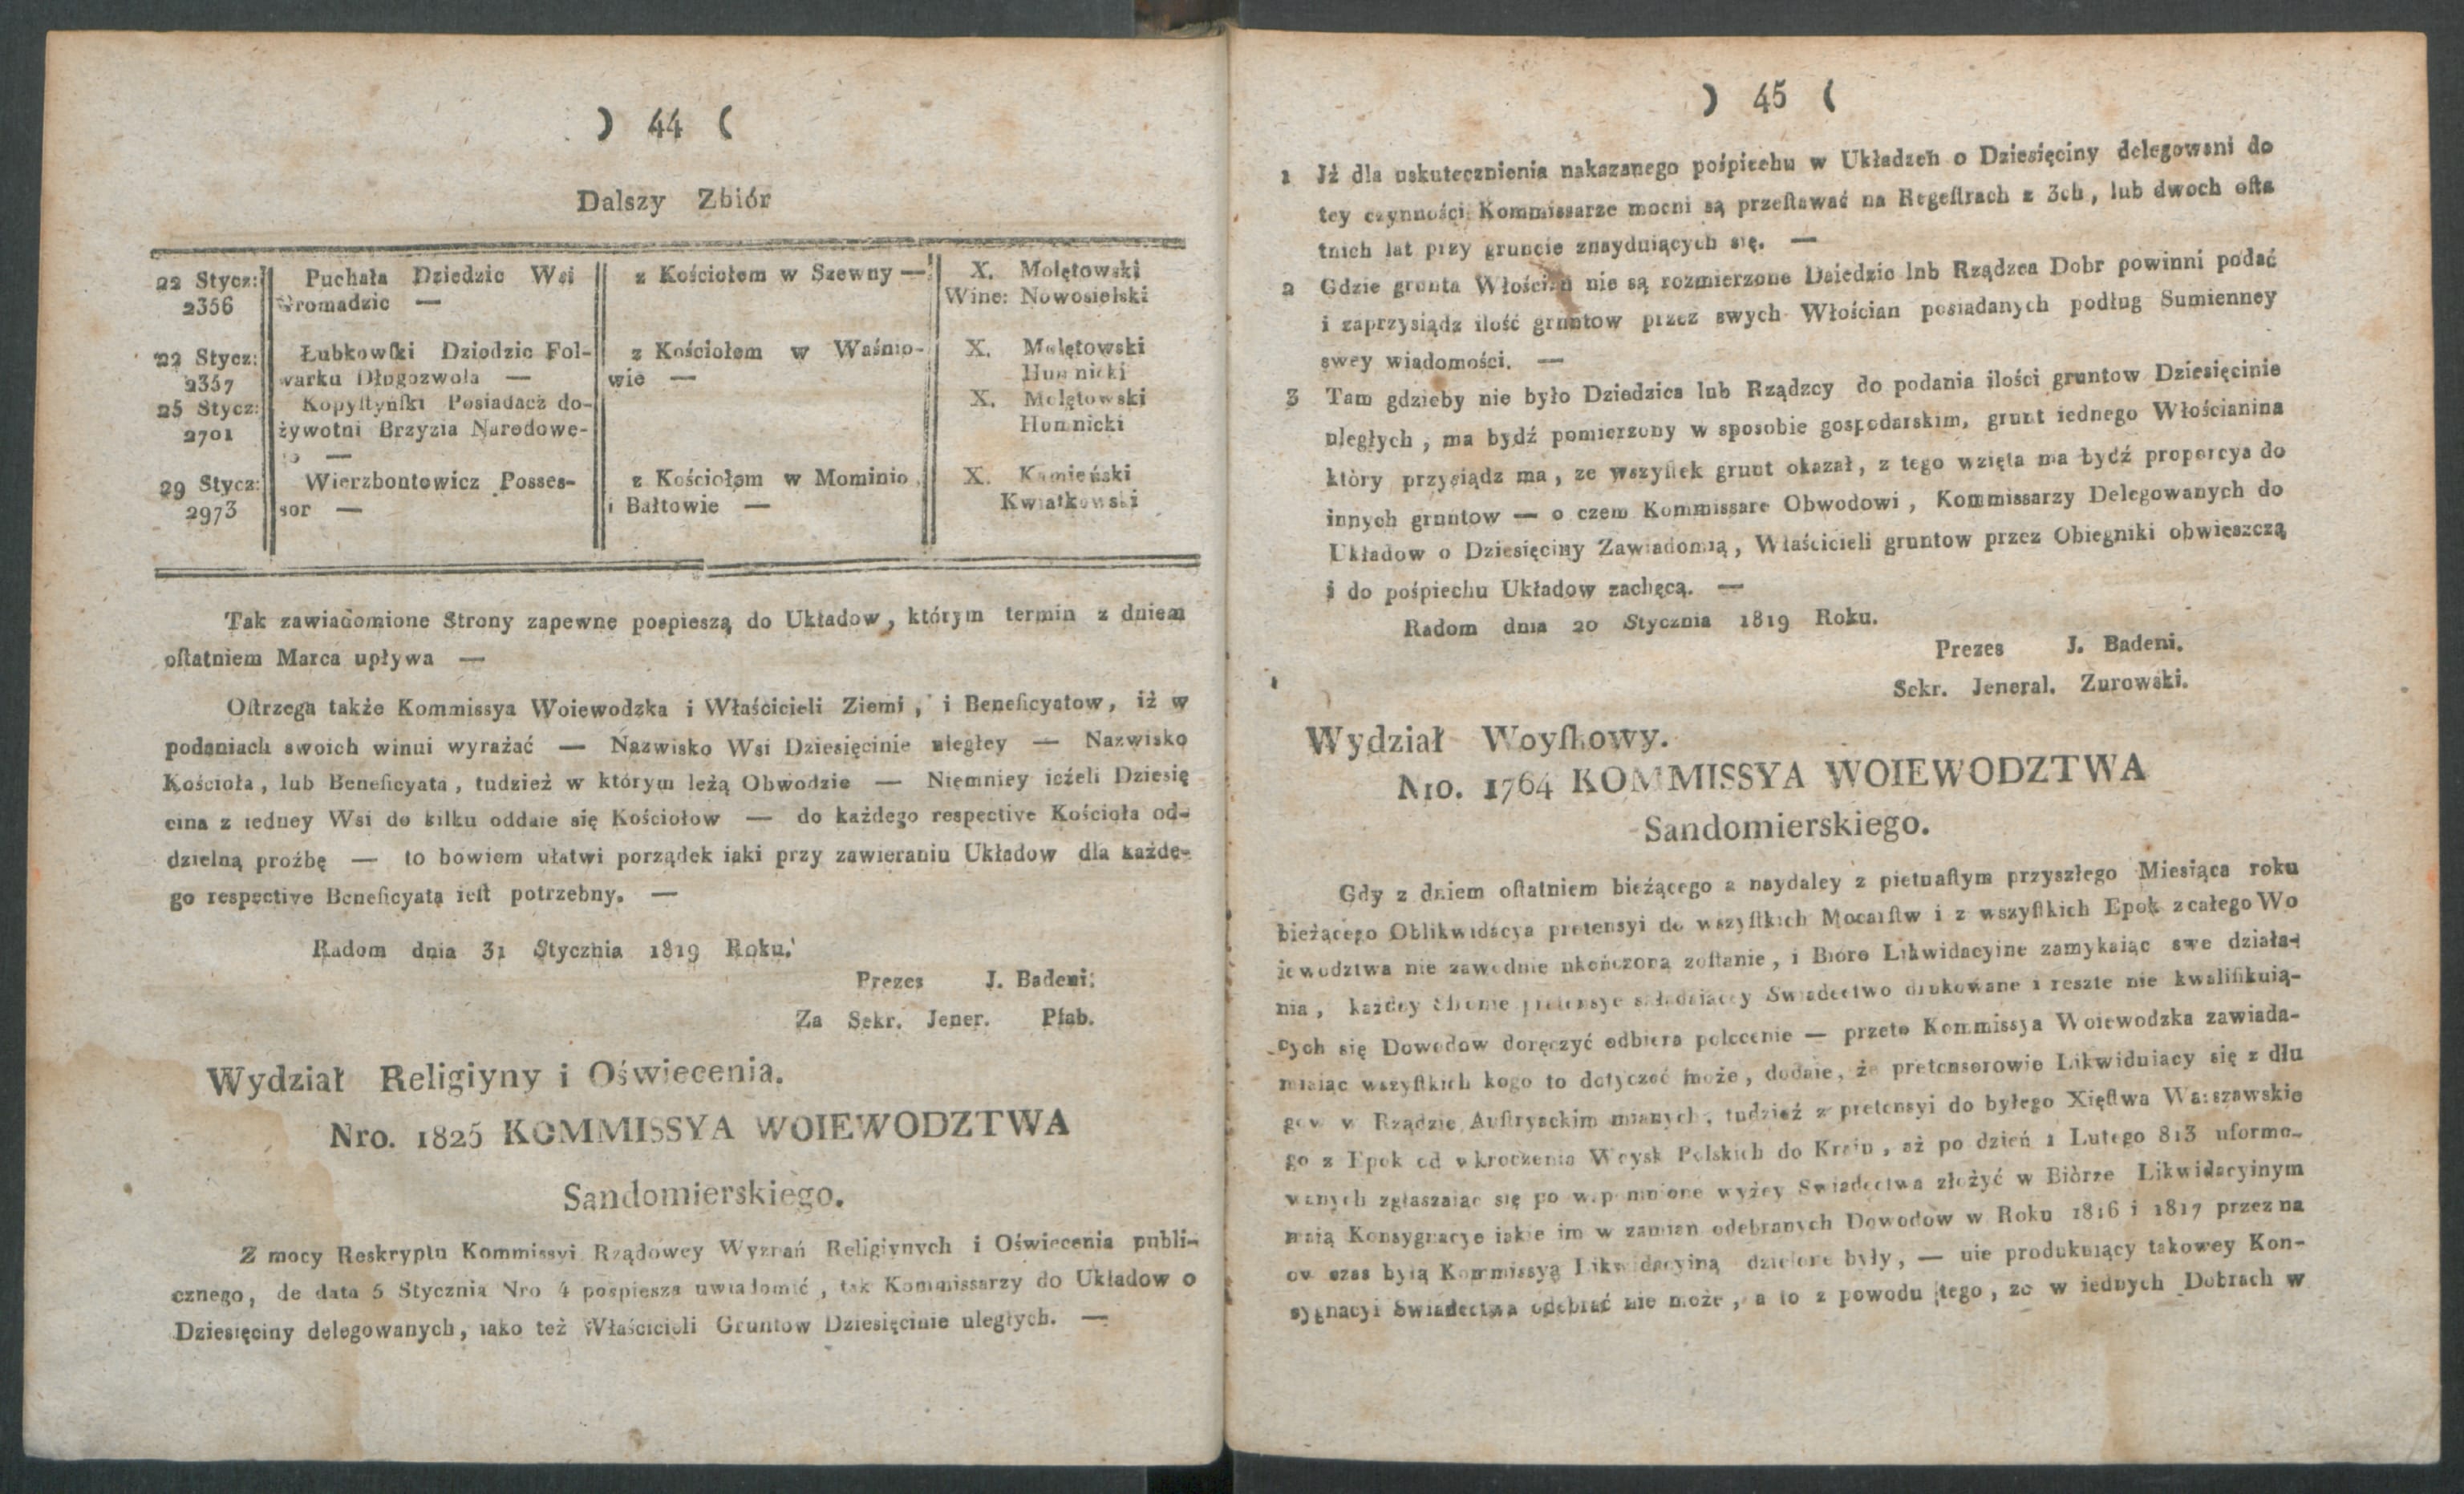 ) 44 (
Dalszy Zbiór
22 Stycz: Puchała Dziedzic Wsi z Kościołem w Szewny — X. Molętowski
2356 Gromadzic — Wine: Nowosielski
22 Stycz: Łubkowſki Dziedzic Fol- z Kościołem w Waśnio- X. Molętowski
2357 warku Długozwola — wie — Humnicki
25 Stycz: Kopyſtyńſki Posiadacz do- X. Molętowski
2701 żywotni Brzyzia Narodowe- Humnicki
go —
29 Stycz: Wierzbontowicz Posses- z Kościołem w Mominio X. Kamieński
2973 sor — i Bałtowie — Kwiatkowski
Tak zawiadomione Strony zapewne pospieszą do Układow, którym termin z dniem
oſtatniem Marca upływa —
Oſtrzega także Kommissya Woiewodzka i Właścicieli Ziemi, i Beneficyatow, iż w
podaniach swoich winni wyrażać — Nazwisko Wsi Dziesięcinie uległey — Nazwisko
Kościoła, lub Beneficyata, tudzież w którym leżą Obwodzie — Niemniey ieżeli Dziesię
cina z iedney Wsi do kilku oddaie się Kościołow — do każdego respective Kościoła od-
dzielną proźbę — to bowiem ułatwi porządek iaki przy zawieraniu Układow dla każde-
go respective Beneficyata ieſt potrzebny. —
Radom dnia 31 Stycznia 1819 Roku.
Prezes J. Badeni.
Za Sekr. Jener. Pfab.
Wydział Religiyny i Oświecenia.
Nro. 1825 KOMMISSYA WOIEWODZTWA
Sandomierskiego.
Z mocy Reskryptu Kommissyi Rządowey Wyznań Religiynych i Oświecenia publi-
cznego, de data 5 Stycznia Nro 4 pospiesza uwiadomić, tak Kommissarzy do Układow o
Dziesięciny delegowanych, iako też Właścicieli Gruntow Dziesięcinie uległych. —
) 45 (
1 Jż dla uskutecznienia nakazanego pośpiechu w Układzeh o Dziesięciny delegowani do
tey czynności Kommissarze mocni są przeſtawać na Regeſtrach z 3ch, lub dwoch oſta
tnich lat przy gruncie znayduiących się. —
2 Gdzie grunta Włościan nie są rozmierzone Dziedzic lnb Rządzca Dobr powinni podać
i zaprzysiądz ilość gruntow przez swych Włościan posiadanych podług Sumienney
swey wiadomości. —
3 Tam gdzieby nie było Dziedzica lub Rządzcy do podania ilości gruntow Dziesięcinie
uległych, ma bydź pomierzony w sposobie gospodarskim, grunt iednego Włościanina
który przysiądz ma, ze wszyſtek grunt okazał, z tego wzięta ma bydź proporcya do
innych gruntow — o czem Kommissare Obwodowi, Kommissarzy Delegowanych do
Układow o Dziesięciny Zawiadomią, Właścicieli gruntow przez Obiegniki obwieszczą
i do pośpiechu Układow zachęcą. —
Radom dnia 20 Stycznia 1819 Roku.
Prezes J. Badeni.
Sekr. Jeneral. Zurowski.
Wydział Woyſkowy.
Nro. 1764 KOMMISSYA WOIEWODZTWA
Sandomierskiego.
Gdy z dniem oſtatniem bieżącego a naydaley z pietnaſtym przyszłego Miesiąca roku
bieżącego Oblikwidacya pretensyi do wszyſtkich Mocarſtw i z wszyſtkich Epok z całego Wo
iewodztwa nie zawodnie ukończona zoſtanie, i Bióro Likwidacyine zamykaiąc swe działa-
nia, każdey Stronie pretensye składaiącey Swiadectwo drukowane i reszte nie kwalifikuią-
cych się Dowodow doręczyć odbiera polecenie — przeto Kommissya Woiewodzka zawiada-
miaiąc wszyſtkich kogo to dotyczeć może, dodaie, że pretensorowie Likwiduiacy się z dłu
gow w Rządzie Auſtryackim mianych, tudzież z pretensyi do byłego Xięſtwa Warszawskie
go z Epok od wkroczenia Woysk Polskich do Kraiu, aż po dzień 1 Lutego 813 uformo-
wanych zgłaszaiąc się po wspomnione wyżey Swiadectwa złożyć w Biórze Likwidacyinym
maią Konsygnacye iakie im w zamian odebranych Dowodów w Roku 1816 i 1817 przez na
ow czas byłą Kommissyą Likwidacyiną dzielone były, — nie produkuiący takowey Kon-
sygnacyi Swiadectwa odebrać nie może, a to z powodu tego, ze w iednych Dobrach w